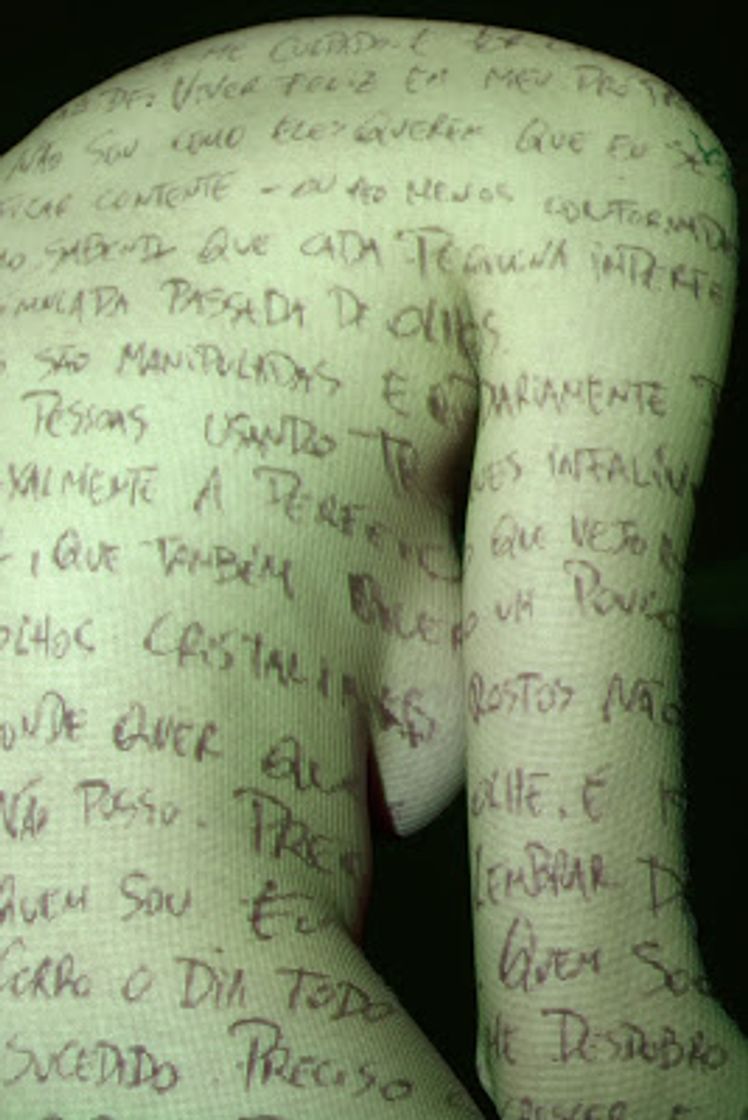 ME CUIDADO. E SER
DE: VIVER FELIZ EM MEU
NÃO SOU COMO ELES QUEREM QUE EU
FICAR CONTENTE - OU AO MENOS CONFORMADA
SABENDO QUE CADA PEQUENA IMPERFE
SIMULADA PASSADA DE OLHOS
SÃO MANIPULADAS E DIARIAMENTE
PESSOAS USANDO TRUQUES INFALÍV
XALMENTE A PERFEIÇÃO QUE VEJO
, QUE TAMBÉM BUSCO UM POUCO
OLHOS CRISTALINOS ROSTOS NÃO
ONDE QUER QUE OLHE. E
NÃO POSSO. PRECISO LEMBRAR D
QUEM SOU EU QUEM SOU
CORRO O DIA TODO ME DESDOBRO
SUCEDIDO. PRECISO CRESCER